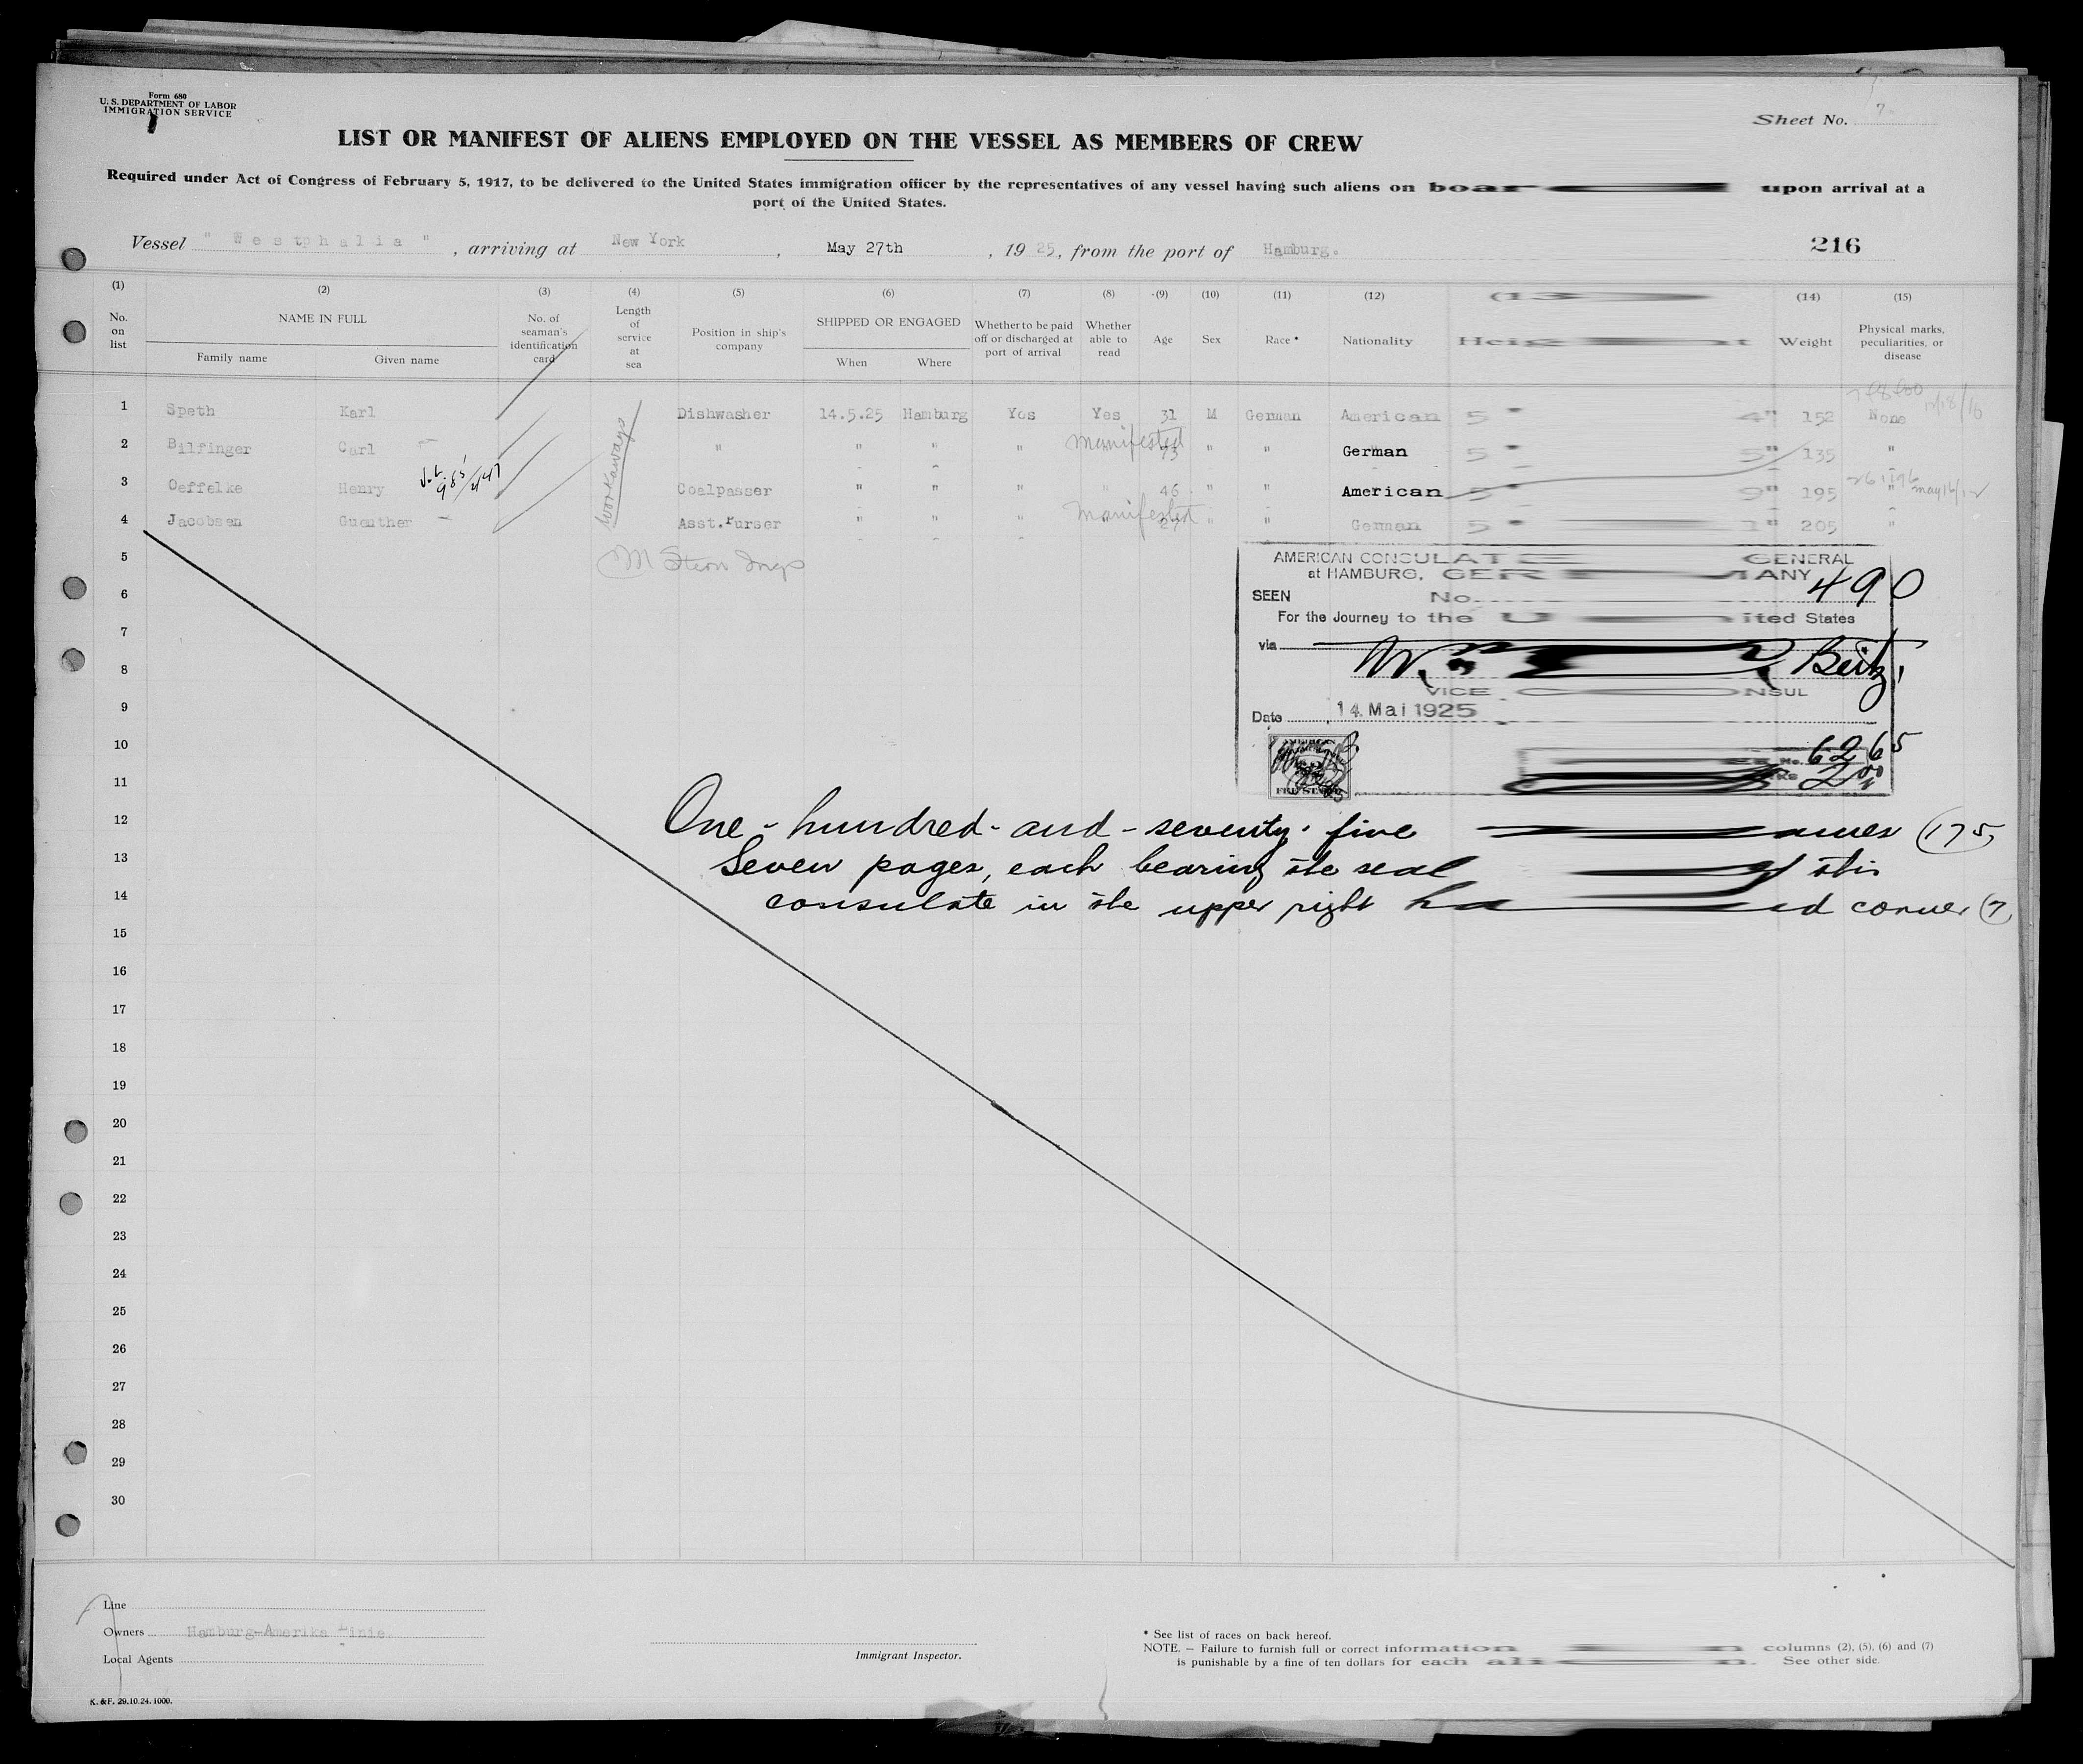 Form 680
U. S. DEPARTMENT OF LABOR
IMMIGRATION SERVICE
Sheet No. 7
LIST OR MANIFEST OF ALIENS EMPLOYED ON THE VESSEL AS MEMBERS OF CREW
Required under Act of Congress of February 5, 1917, to be delivered to the United States immigration officer by the representatives of any vessel having such aliens on boar upon arrival at a
port of the United States.
Vessel " Westphalia ", arriving at New York, May 27th, 19 25, from the port of Hamburg.
216
(1) (2) (3) (4) (5) (6) (7) (8) (9) (10) (11) (12) (13 (14) (15)
No. on list NAME IN FULL Family name Given name No. of seaman's identification card Length of service at sea Position in ship's company SHIPPED OR ENGAGED When Where Whether to be paid off or discharged at port of arrival Whether able to read Age Sex Race * Nationality Heig t Weight Physical marks, peculiarities, or disease
1 Speth Karl Dishwasher 14.5.25 Hamburg Yes Yes 31 M German American 5 " 4" 152 None
2 Bilfinger Carl " " " " Manifested " " German 5 " 5" 135 "
3 Oeffelke Henry Coalpasser " " " " 46 " " American 5 " 9" 195 "
4 Jacobsen Guenther Asst.Purser " " " Manifested " " German 5 " 1" 205 "
Workaways
5
M Stern Insp
AMERICAN CONSULATE GENERAL
at HAMBURG, GERMANY
SEEN No. 490
For the Journey to the United States
via
Beitz
VICE CONSUL
Date 14. Mai 1925
No. 6265
2.00
6
7
8
9
10
11
12
13
14
One-hundred-and-seventy-five names (175)
Seven pages, each bearing the seal of this
consulate in the upper right hand corner (7)
15
16
17
18
19
20
21
22
23
24
25
26
27
28
29
30
Line
Owners Hamburg-Amerika Linie.
Local Agents
Immigrant Inspector.
* See list of races on back hereof.
NOTE. — Failure to furnish full or correct information n columns (2), (5), (6) and (7)
is punishable by a fine of ten dollars for each alien. See other side.
K. & F. 29.10.24. 1000.